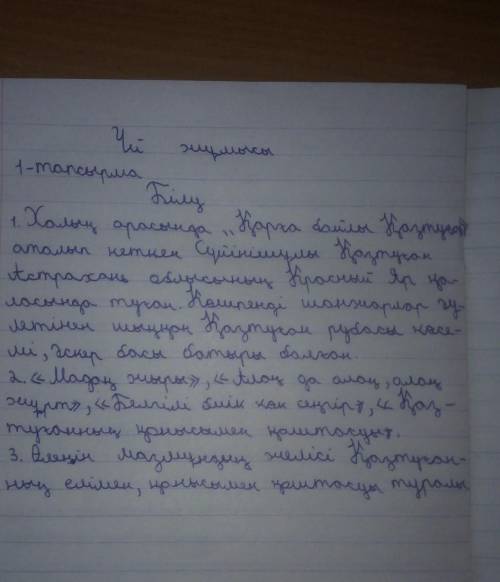 Үй жұмысы
1-тапсырма
Білу
1. Халық арасында „Қарға бойлы Қазтуған"
аталып кеткен Сүйінішұлы Қазтуған
Астрахань облысының Красный Яр қа-
ласында туған. Көшпенді шонжарлар әу-
летінен шыққан Қазтуған рубасы көсе-
мі, әскер басы батыры болған.
2. «Мадақ жыры», «Алаң да алаң, алаң
жұрт», «Белгілі биік көк сеңгір», «Қаз-
туғанның қонысымен қоштасуы».
3. Өлеңін мазмұндың желісі Қазтуған-
ның елімен, қонысымен қоштасуы туралы